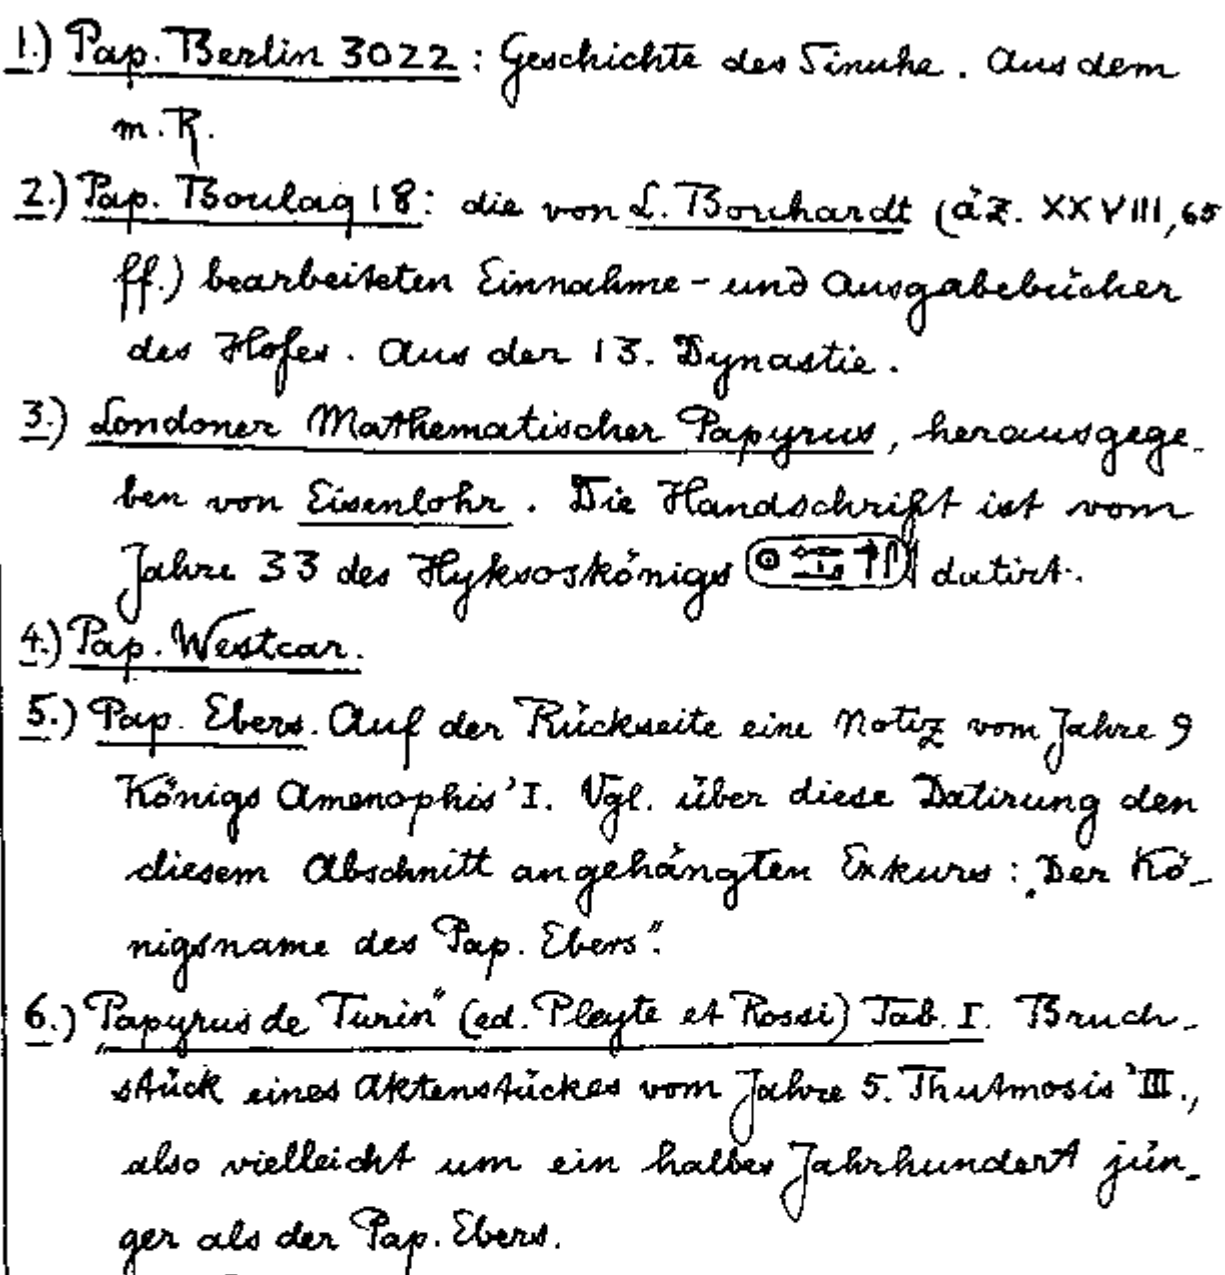 1.) Pap. Berlin 3022: Geschichte des Sinuhe. Aus dem
m. R.
2.) Pap. Boulaq 18: die von L. Borchardt (äZ. XXVIII, 65
ff.) bearbeiteten Einnahme- und Ausgabebücher
des Hofes. Aus der 13. Dynastie.
3.) Londoner Mathematischer Papyrus, herausgege-
ben von Eisenlohr. Die Handschrift ist vom
Jahre 33 des Hyksoskönigs datirt.
4.) Pap. Westcar.
5.) Pap. Ebers. Auf der Rückseite eine Notiz vom Jahre 9
Königs Amenophis' I. Vgl. über diese Datirung den
diesem Abschnitt angehängten Exkurs: „Der Kö-
nigsname des Pap. Ebers“.
6.) „Papyrus de Turin“ (ed. Pleyte et Rossi) Tab. I. Bruch-
stück eines Aktenstückes vom Jahre 5. Thutmosis' III.,
also vielleicht um ein halbes Jahrhundert jün-
ger als der Pap. Ebers.